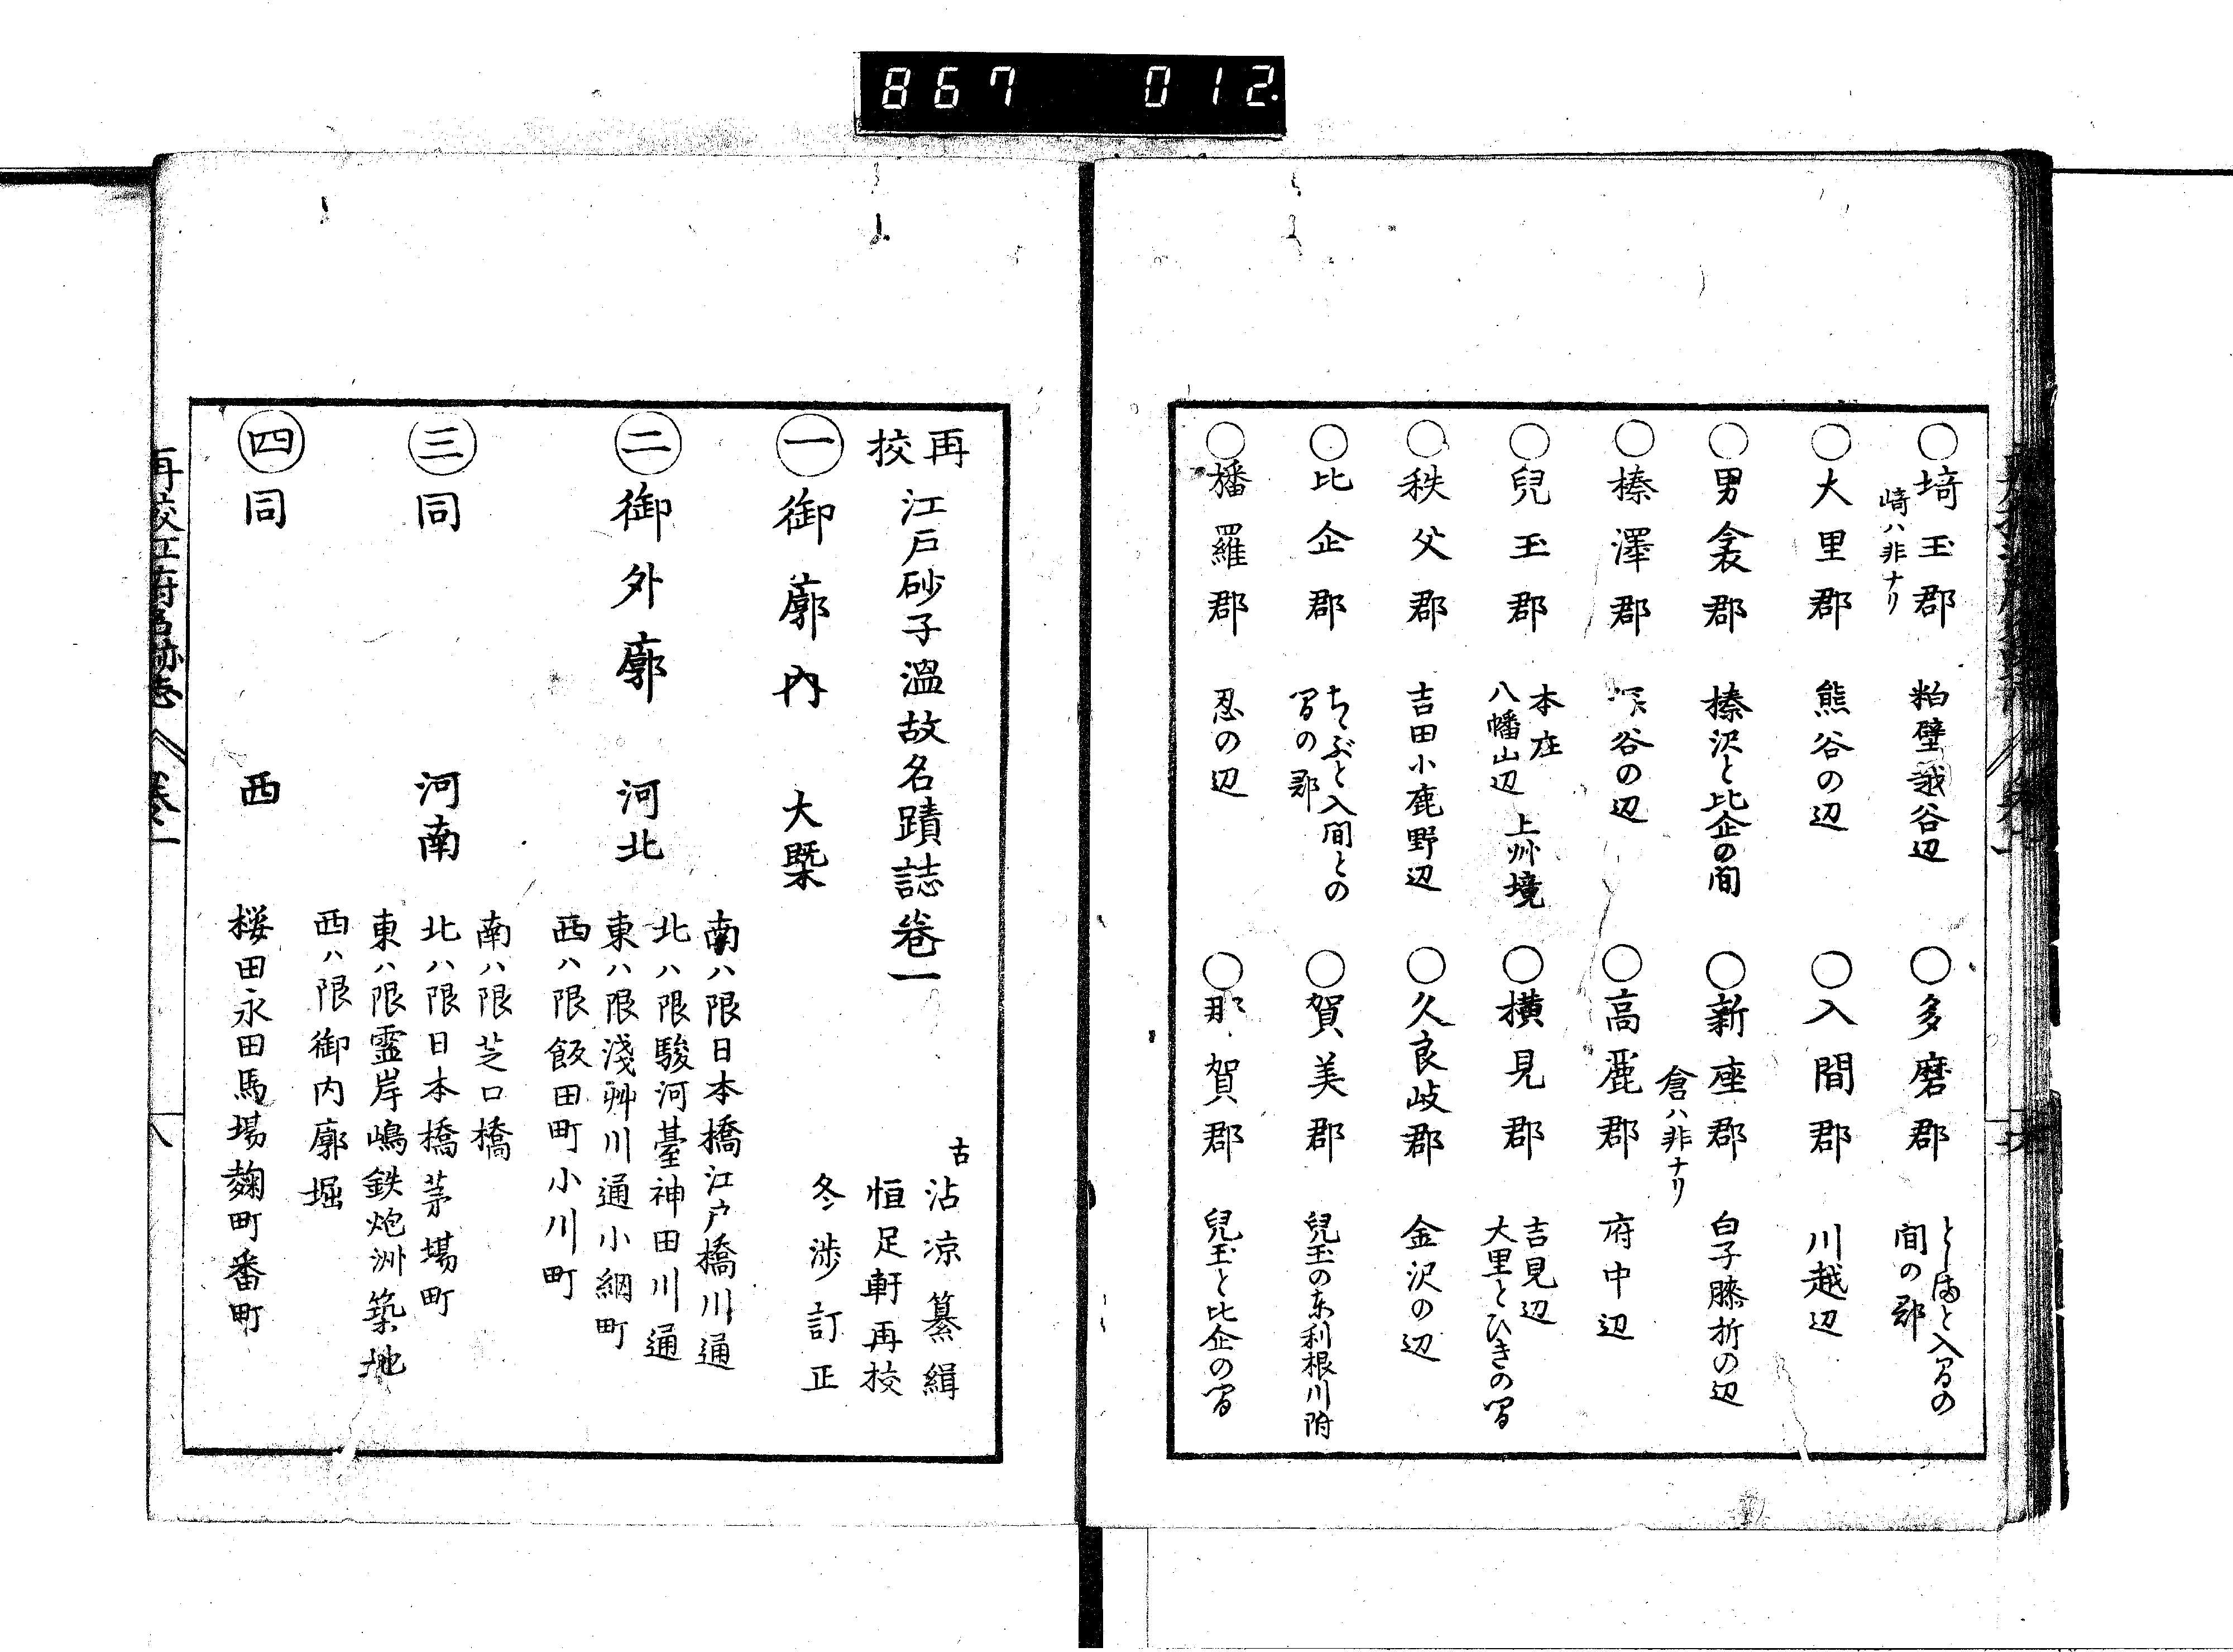 867 012
○埼玉郡 粕壁越谷辺
崎ハ非ナリ
○多磨郡
としまと入間の
間の郡
○大里郡 熊谷の辺
○入間郡 川越辺
○男衾郡 榛沢と比企の間
○新座郡 白子膝折の辺
倉ハ非ナリ
○榛澤郡 谷の辺
○高麗郡 府中辺
○兒玉郡
本庄
八幡山辺 上州境
○横見郡
吉見辺
大里とひきの間
○秩父郡 吉田小鹿野辺
○久良岐郡 金沢の辺
○比企郡
ちゝぶと入間との
間の郡
○賀美郡 兒玉の東利根川附
○播羅郡 忍の辺
○那賀郡 兒玉と比企の間
再校 江戸砂子温故名蹟誌巻一
古 沾凉纂緝
恒足軒再校
冬渉訂正
一 御廓内 大槩
二 御外廓 河北
南ハ限日本橋江戸橋川通
北ハ限駿河臺神田川通
東ハ限淺艸川通小網町
西ハ限飯田町小川町
三 同 河南
南ハ限芝口橋
北ハ限日本橋茅場町
東ハ限霊岸嶋鉄炮洲築地
西ハ限御内廓堀
四 同 西 桜田永田馬場麹町番町
再校江府名跡志 巻一
八